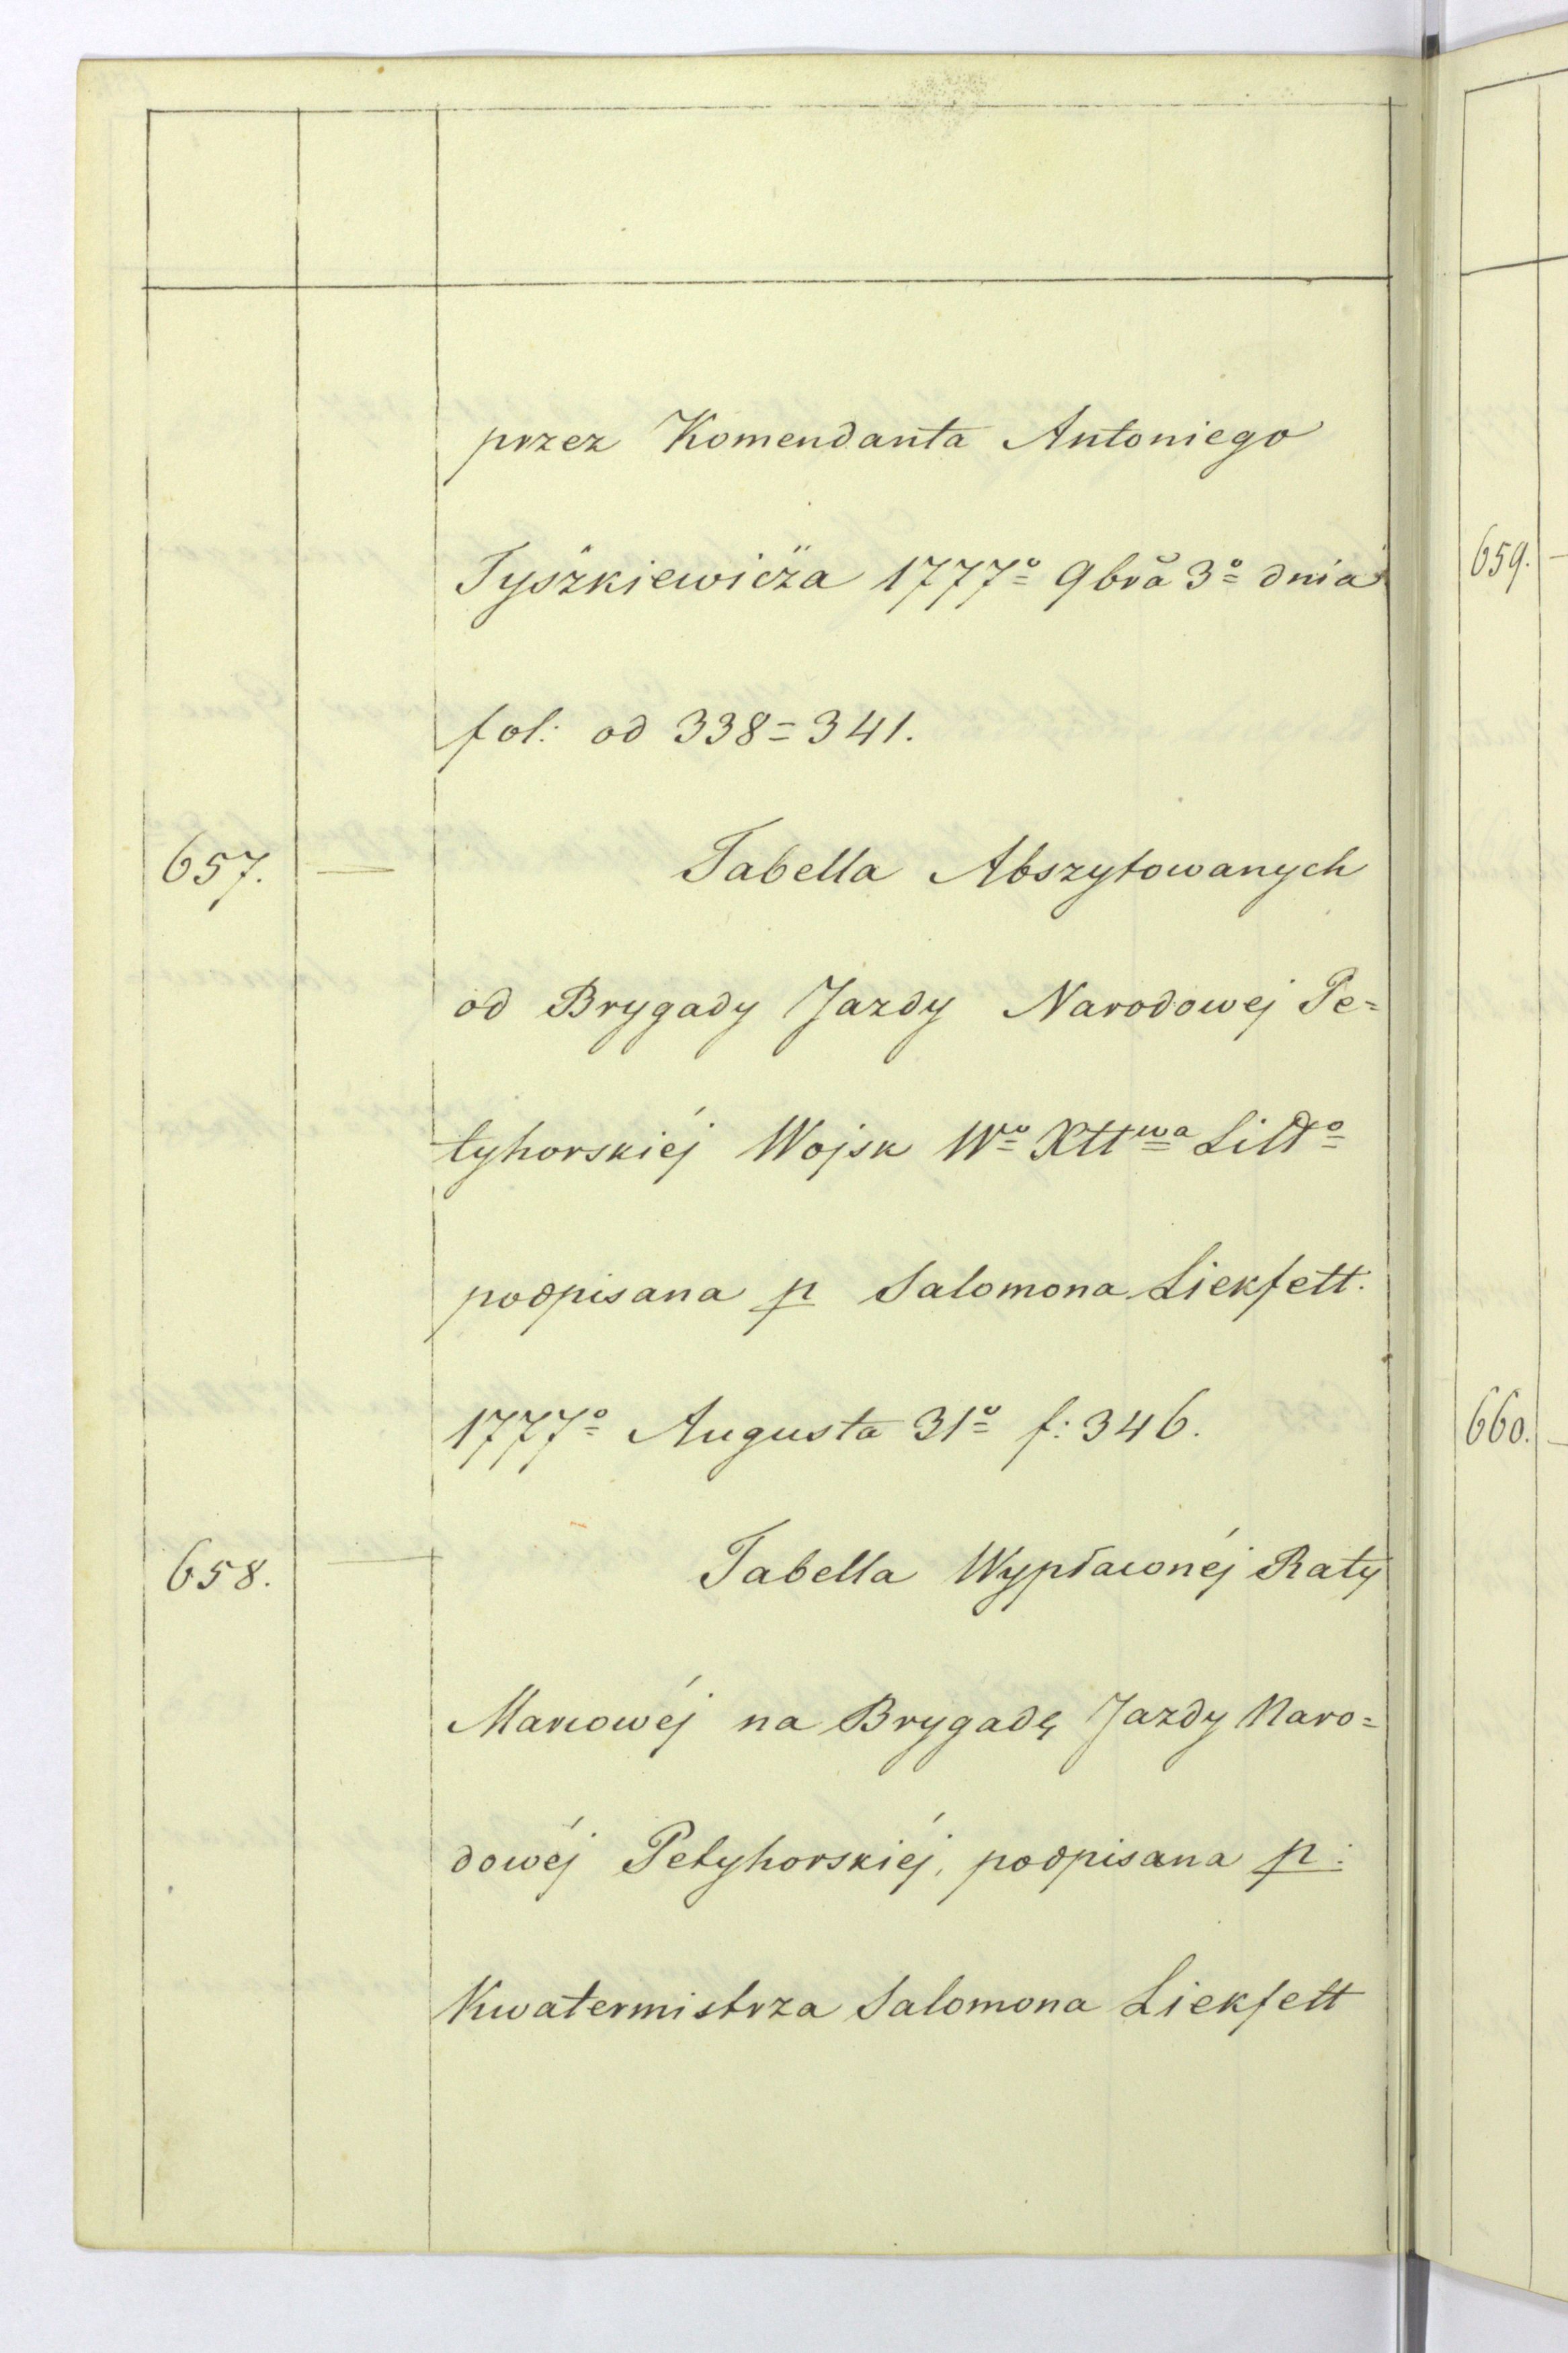 przez Komendanta Antoniego
Tyszkiewicza 1777º 9bra 3º dnia
fol: od 338=341.
657. — Tabella Abszytowanych
od Brygady Jazdy Narodowej Pe=
tyhorskiéj Wojsk Wº Xttwa Littº
podpisana p Salomona Liekfett.
1777º Augusta 31º f: 346.
658. — Tabella Wypłaconéj Raty
Marcowéj na Brygadę Jazdy Naro=
dowéj Petyhorskiéj, podpisana p:
Kwatermistrza Salomona Liekfett
659. —
660. —